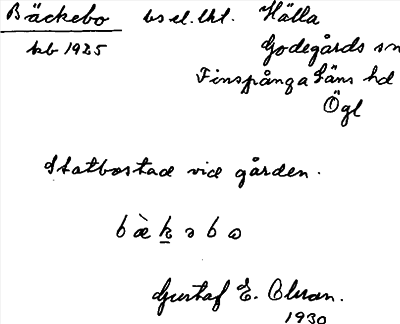 Bäckebo bs el. lht. Hälla
kb 1925 Godegårds sn
Finspånga läns hd
Ögl
Statbostad vid gården.
b æ̀ k ə b ω
Gustaf E. Olson.
1930